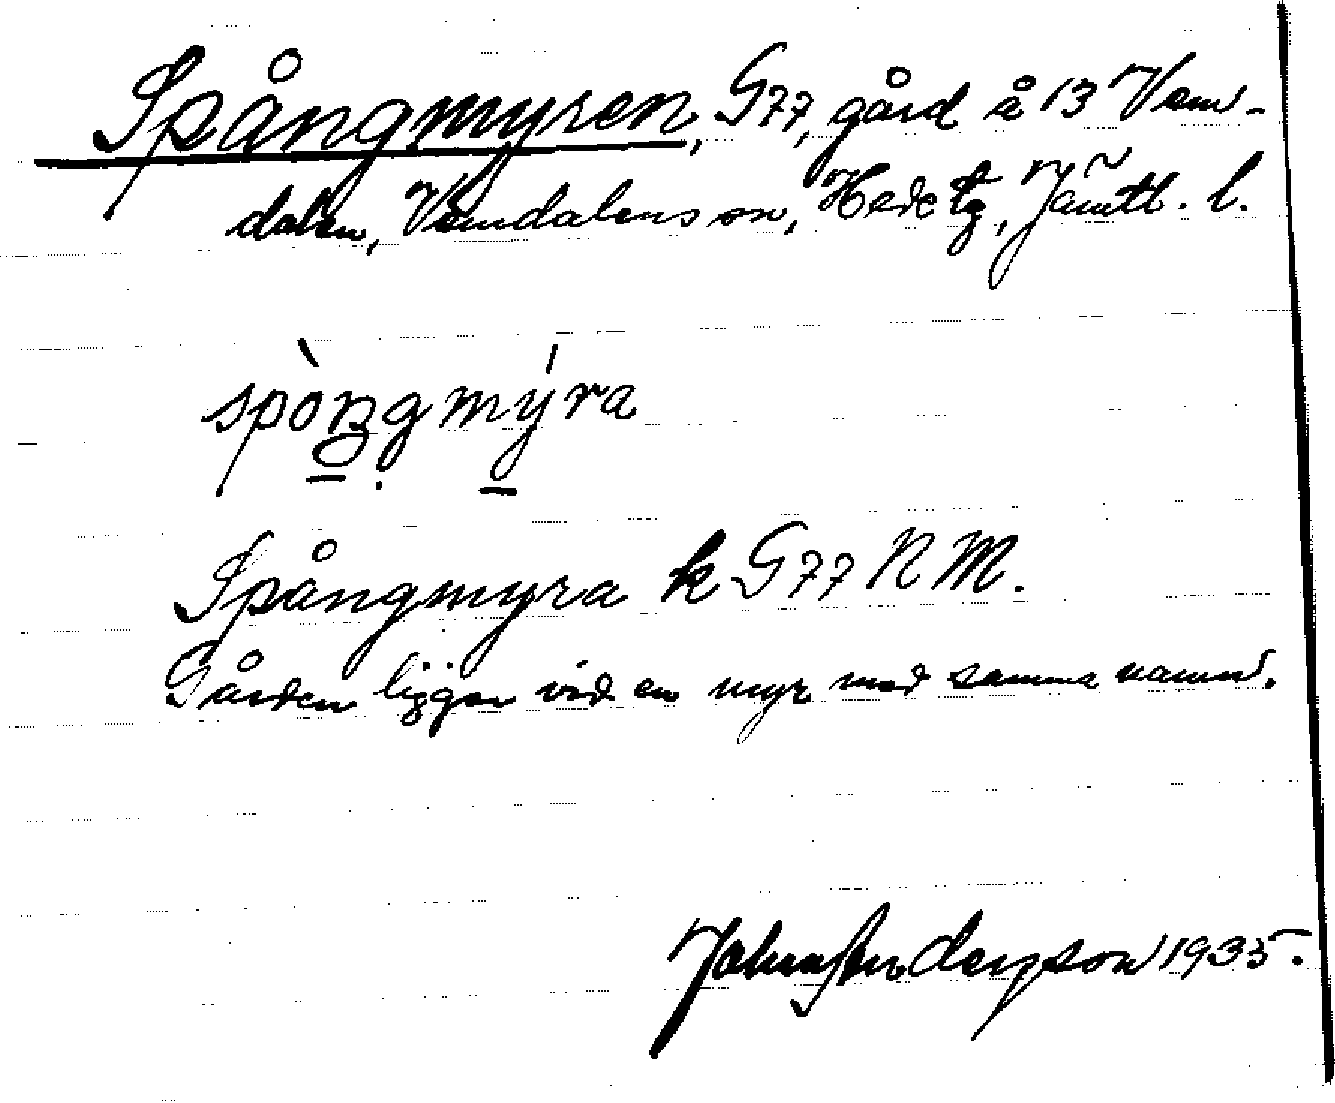 Spångmyren, G77, gård å 13 Vem-
dalen, Vemdalens sn, Hede tg, Jämtl. l.
spòŋgmýra
Spångmyra k G77 NM.
Gården ligger vid en myr med samma namn.
John Andersson 1935.